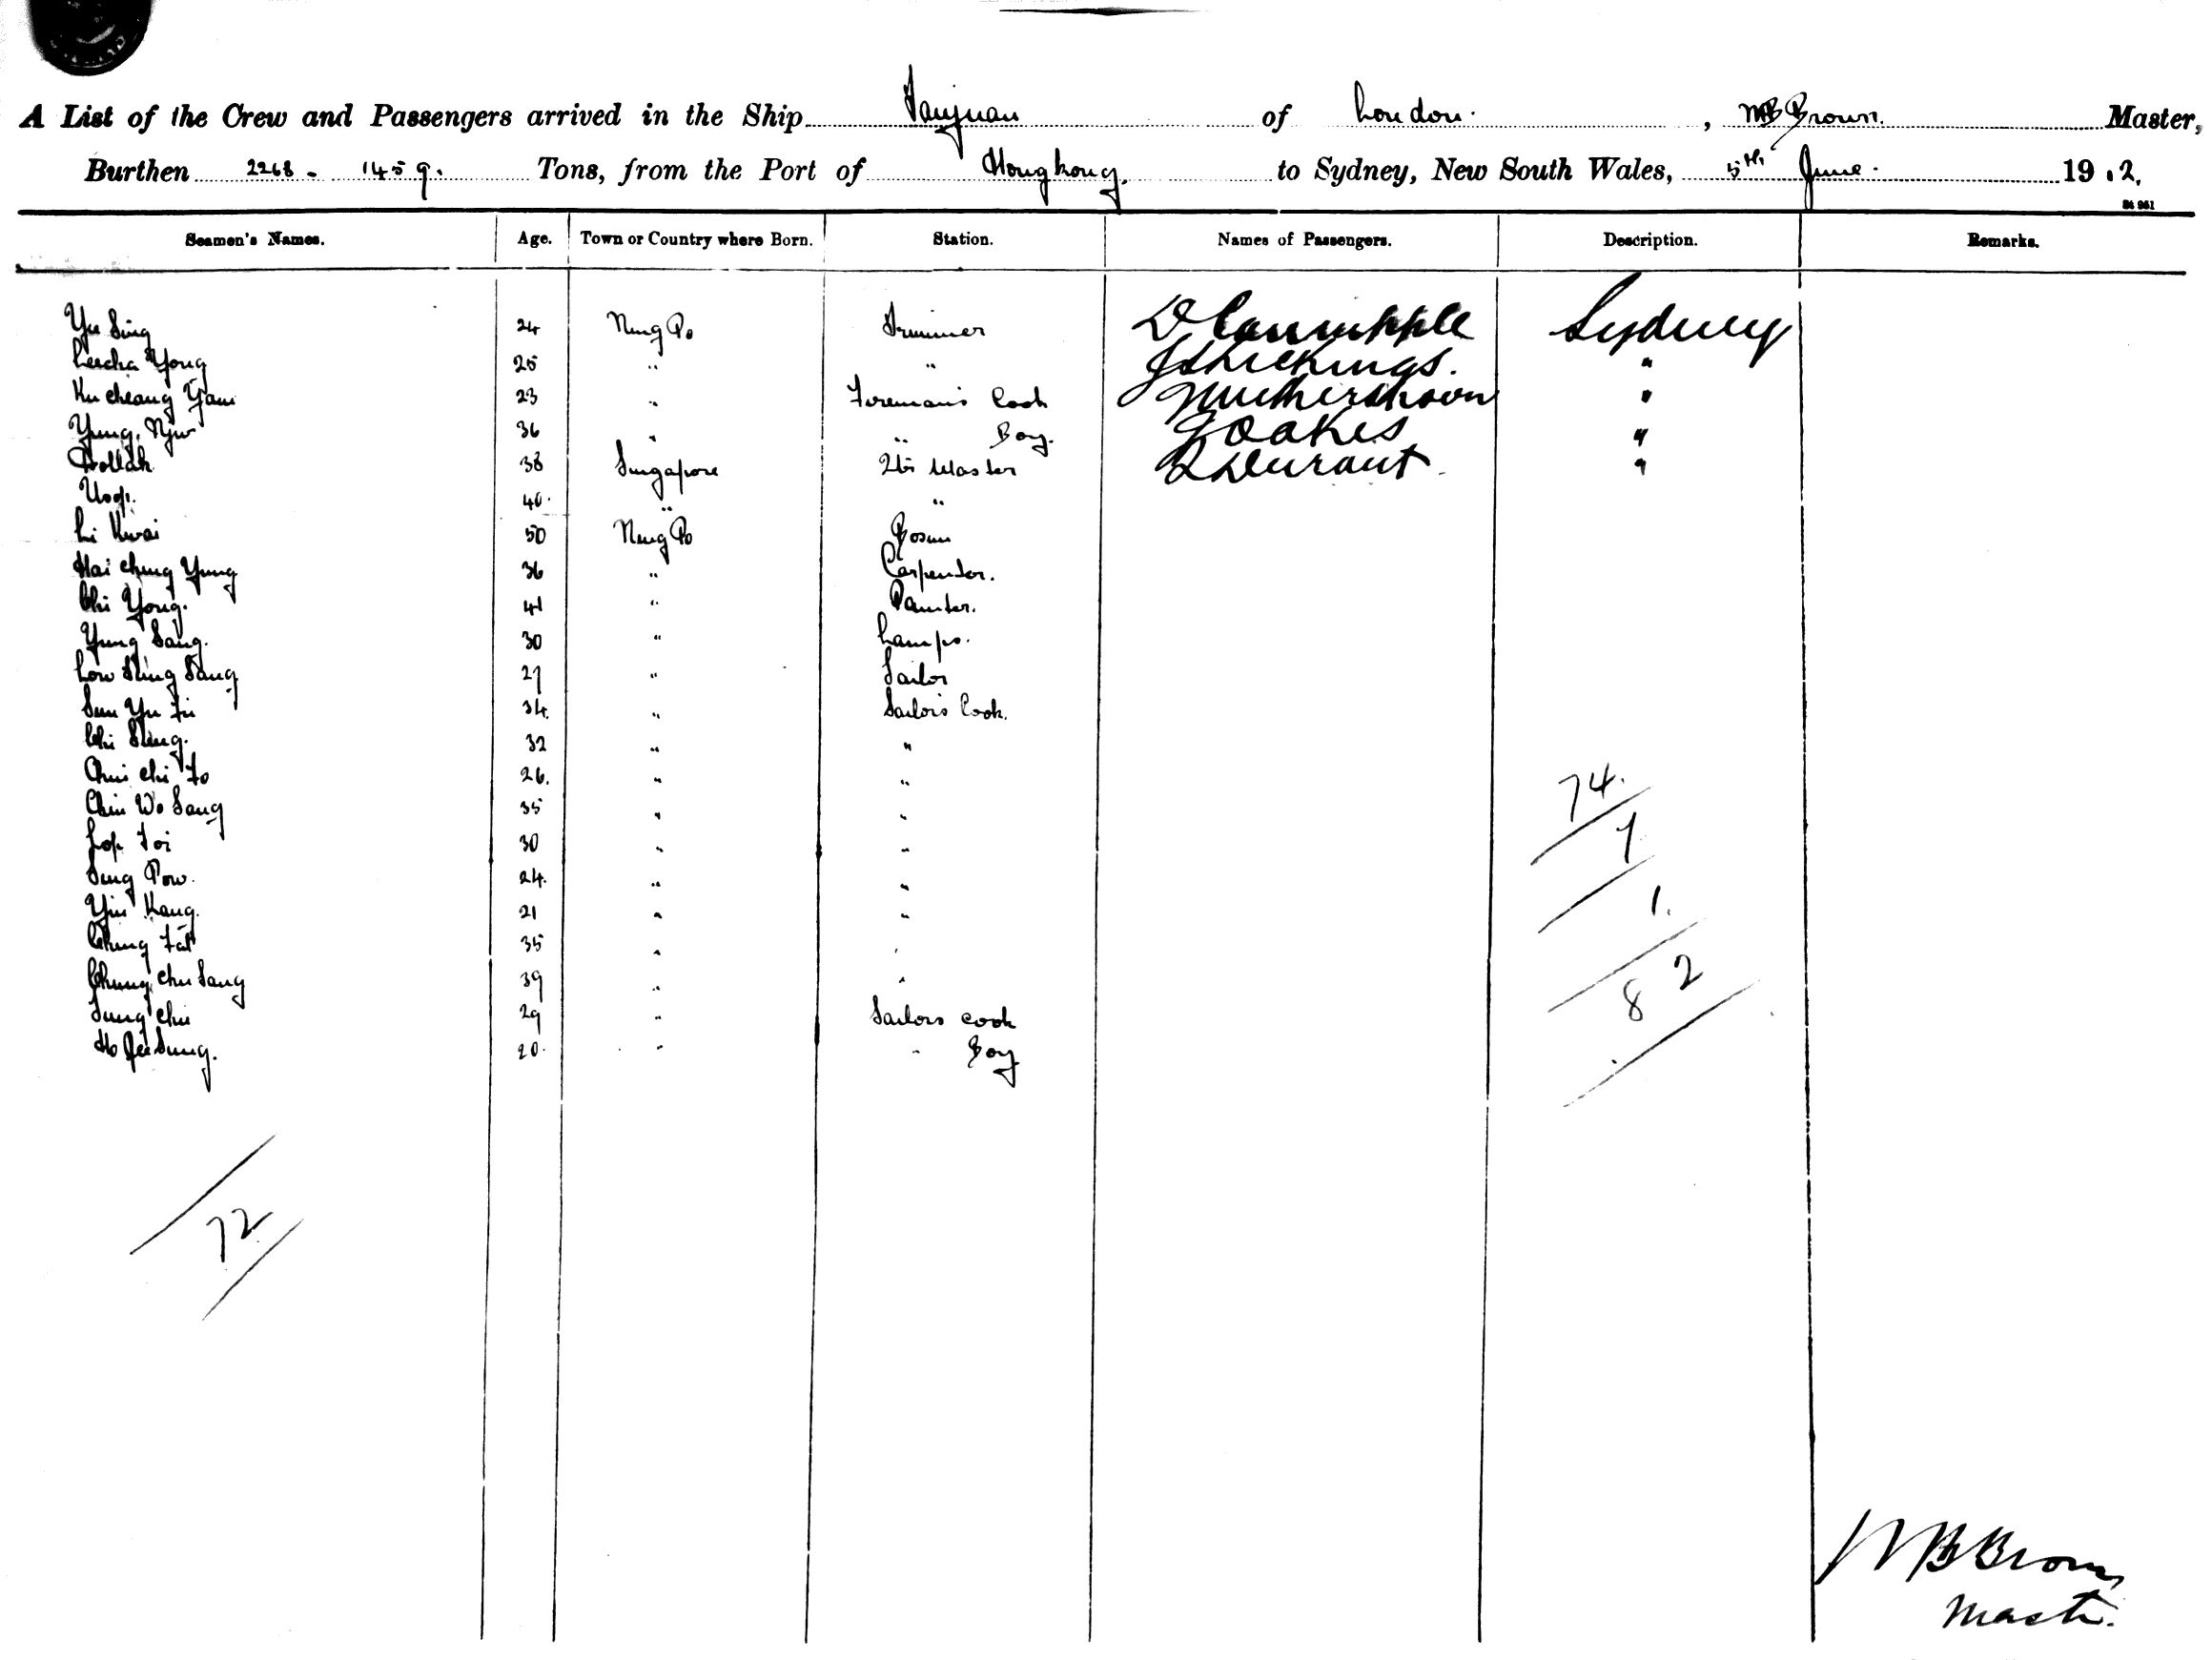 A List of the Crew and Passengers arrived in the Ship Taiyuan of London. , Brown. Master,
Burthen 2268 - 1459. Tons, from the Port of Hongkong. to Sydney, New South Wales, 5th June. 1902.
Seamen's Names. Age. Town or Country where Born. Station. Names of Passengers. Description. Remarks.
Yee Sing 24 Ning Po Trimmer Sydney
Yong 25 " " "
Ku cheang Yam 23 " Fireman's Cook "
Yung 36 " " Boy. J Oakes "
38 Singapore Qtr Master Durant "
40. " "
Li Kwai 50 Ning Po Bosun
Hai Ching Yung 36 " Carpenter.
Chi Yong. 41 " Painter.
Yung Sang. 30 " Lamps.
Low Ming Sang 27 " Sailor
Sun Yu 34. " Sailors Cook.
Chi 32 " "
Chui chi Fo 26. " "
Chin Wo Sang 35 " "
Foi 30 " "
Sing Pow. 24. " "
Yin Kang. 21 " "
Chung Fat 35 " "
Chung Chu Sang 39 " "
Sung chu 29 " Sailors cook
Ho Sung. 20. " " Boy
74.
7
1.
82
72
Brown
Mastr.